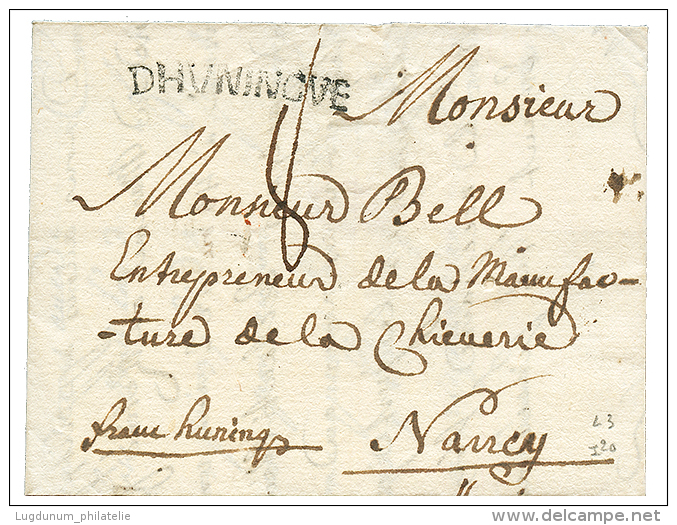 DHVNINGVE
Monsieur
Monsieur Bell
Entrepreneur de la Manufac-
-ture de la Chieuerie
franc huningue
Nancy
L3
120
Lugdunum_philatelie
delcampe.net